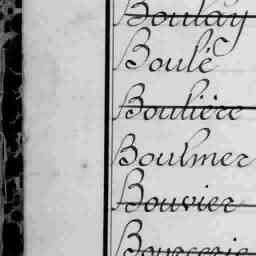 Boulay
Boulé
Boulière
Boulmer
Bouvier
Bourcerie